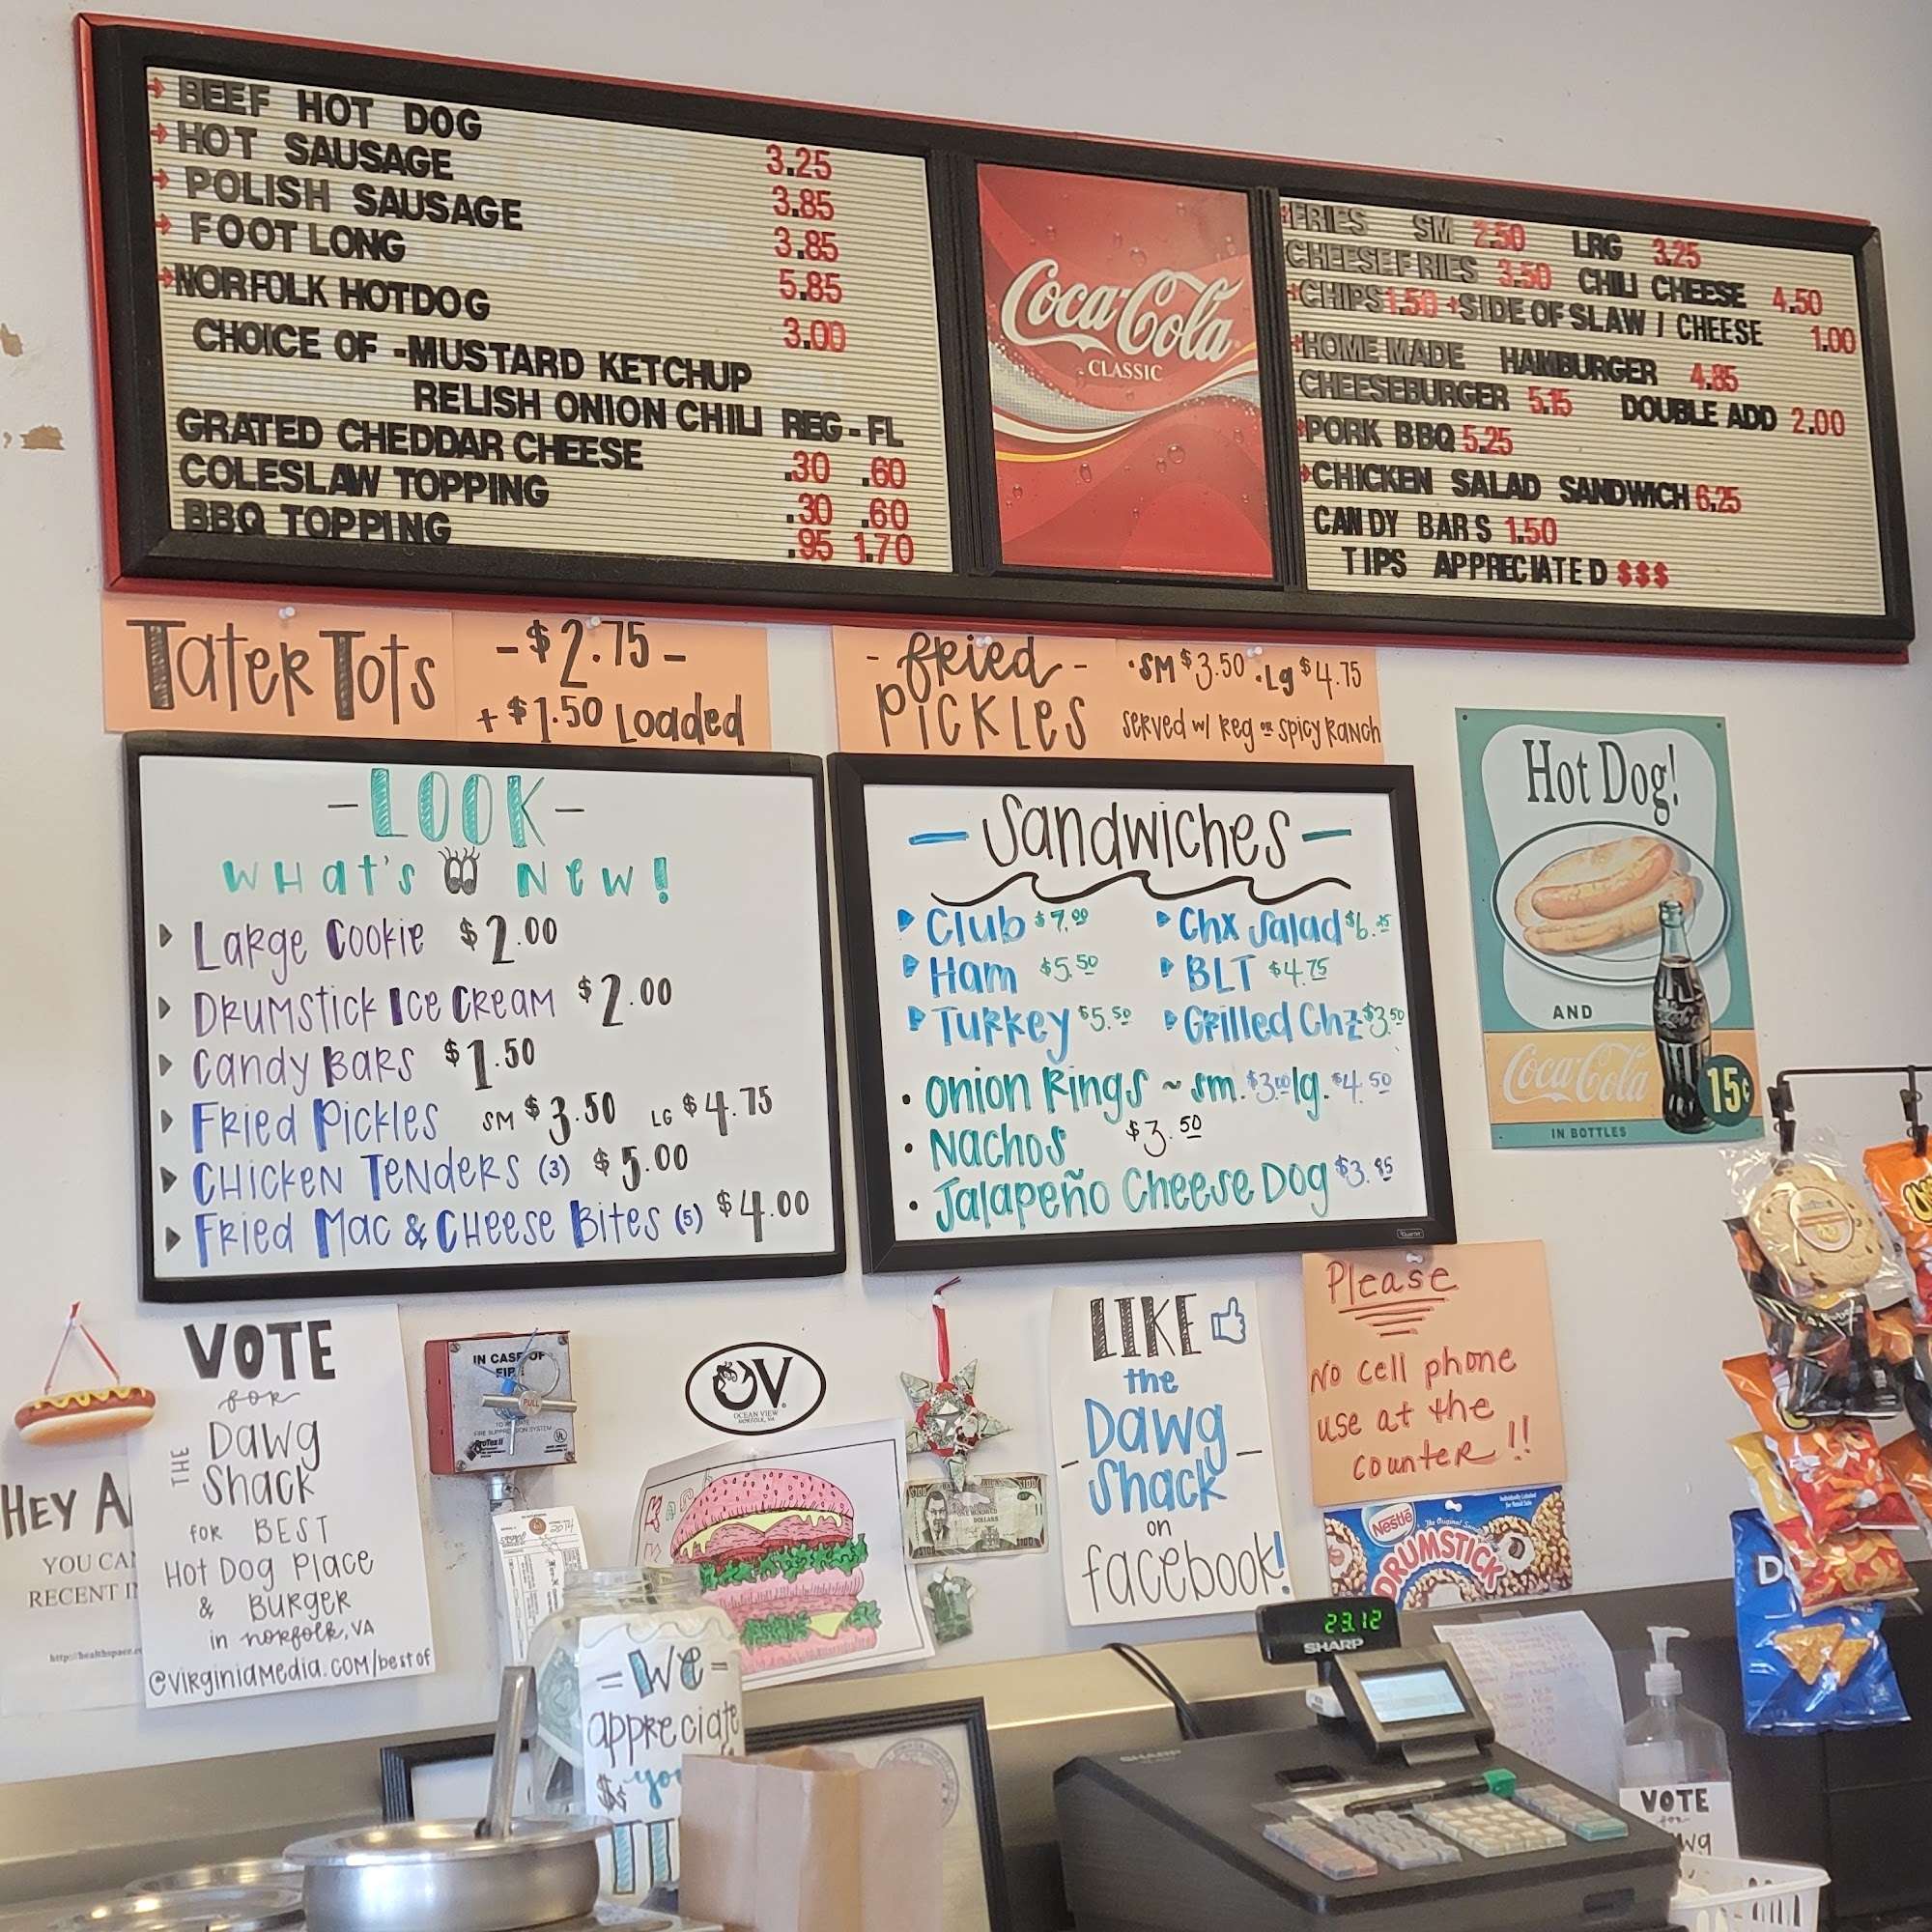 BEEF HOT DOG 3.25
HOT SAUSAGE 3.85
POLISH SAUSAGE 3.85
FOOT LONG 5.85
NORFOLK HOTDOG 3.00
CHOICE OF -MUSTARD KETCHUP
RELISH ONION CHILI REG - FL
GRATED CHEDDAR CHEESE .30 .60
COLESLAW TOPPING .30 .60
BBQ TOPPING .95 1.70
Coca-Cola
CLASSIC
FRIES SM 2.50 LRG 3.25
CHEESEFRIES 3.50 CHILI CHEESE 4.50
CHIPS 1.50 SIDE OF SLAW / CHEESE 1.00
HOME MADE HAMBURGER 4.85
CHEESEBURGER 5.15 DOUBLE ADD 2.00
PORK BBQ 5.25
CHICKEN SALAD SANDWICH 6.25
CANDY BARS 1.50
TIPS APPRECIATED $$$
Tater Tots
- $2.75 -
+ $1.50 Loaded
- fried -
PICKLES
•SM $3.50 •Lg $4.75
served w/ Reg or spicy Ranch
- LOOK -
What's New!
Large Cookie $2.00
Drumstick Ice Cream $2.00
Candy Bars $1.50
Fried Pickles SM $3.50 LG $4.75
Chicken Tenders (3) $5.00
Fried Mac & Cheese Bites (5) $4.00
Sandwiches
Club $7.00 Chx Salad $6.25
Ham $5.50 BLT $4.75
Turkey $5.50 Grilled Chz $3.50
• Onion Rings ~ sm. $3.00 lg. $4.50
• Nachos $3.50
• Jalapeño Cheese Dog $3.85
Hot Dog!
AND
Coca-Cola
15¢
IN BOTTLES
HEY A
YOU CA
RECENT I
VOTE
for
THE Dawg
Shack
for BEST
Hot Dog Place
& Burger
in norfolk, VA
@virginiaMedia.com/bestof
IN CASE OF
FIRE
PULL
OV
OCEAN VIEW
NORFOLK, VA
LIKE
the
Dawg
Shack
on
facebook!
Please
No cell phone
use at the
counter!!
Nestlé
The Original
DRUMSTICK
=We=
appreciate
you
SHARP
SHARP
VOTE
for
$100
ONE HUNDRED
DOLLARS
$100